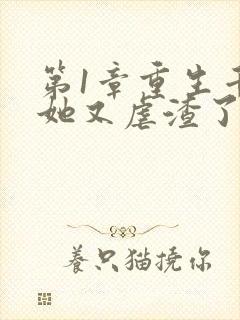 第1章重生
她又虐渣了
養只猫撓你